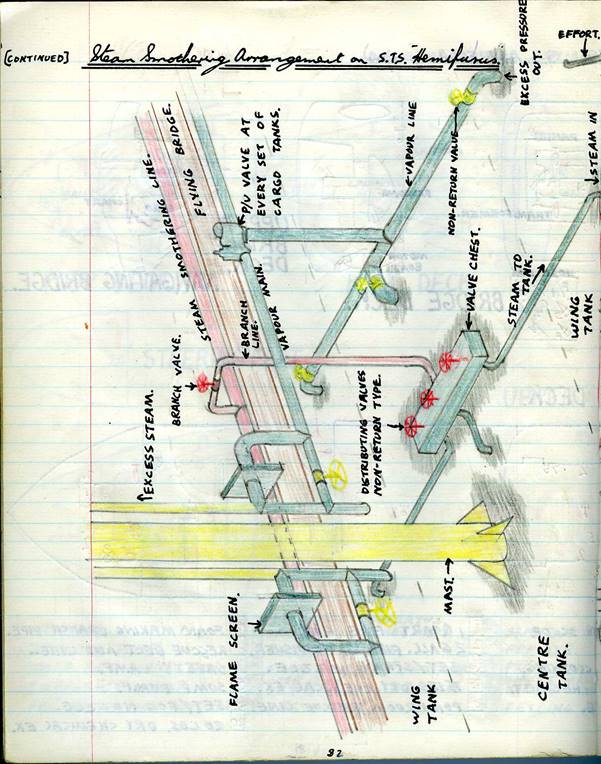 [CONTINUED]
Steam Smothering Arrangement on S.T.S. "Hemifusus"
EXCESS PRESSURE
OUT.
EFFORT.
STEAM SMOTHERING LINE.
FLYING BRIDGE.
P/V VALVE AT
EVERY SET OF
CARGO TANKS.
VAPOUR LINE
NON-RETURN VALVE
STEAM IN
VALVE CHEST.
STEAM TO
TANK.
WING
TANK
BRANCH
LINE.
VAPOUR MAIN.
BRANCH VALVE.
EXCESS STEAM.
DISTRIBUTING VALVES
NON-RETURN TYPE.
FLAME SCREEN.
MAST.
WING
TANK
CENTRE
TANK.
92